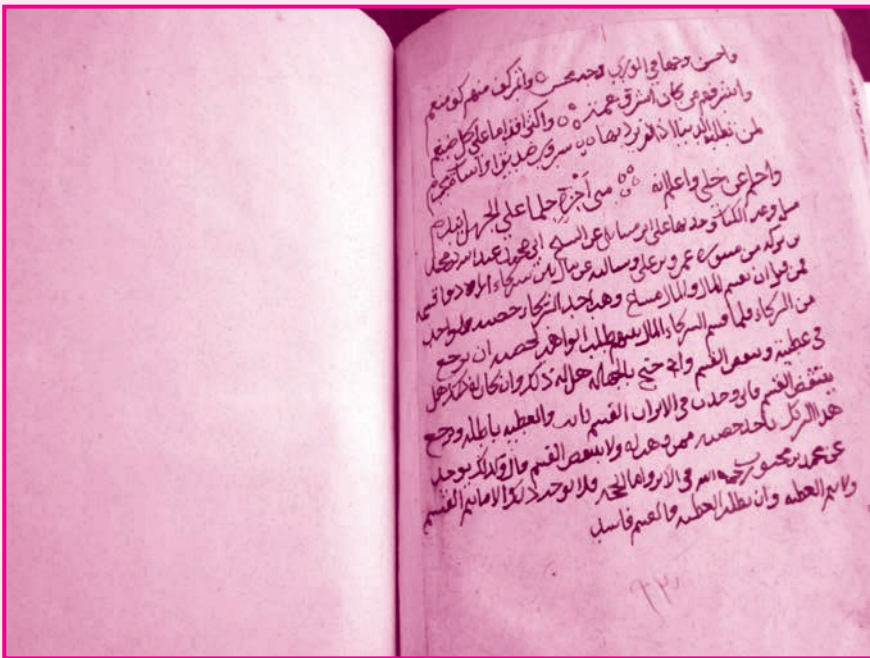 واحسن وجها في الورى وجه محسن وايمن كف منهم كف منعم
واشرفهم من كان اشرف همة واكثر اقداما على كل معظم
لمن تطلب الدنيا اذا لم ترد بها سرور صديق او اساءة مجرم
واحلم عن خلي واعلم انه متى اجزه حلما على الجهل يندم
مسله وعد الكتاب وجدتها على اثر مسايل عن الشيخ ابي محمد عبد الله بن محمد
بن بركه من مسوره عمرو بن علي وسالته عن مال بين شركاء ارادوا قسمه
فمن قبل ان يقسم المال والمال مشاع وهب احد الشركاء حصته لواحد
من الشركاء فلما قسم الشركاء المال بينهم طلب الواهب لحصته ان يرجع
في عطيته وينقض القسم واحتج بالجهاله هل له ذلك وان كان له ذلك هل
ينتقض القسم فاني وجدت في الاثران القسم تام والعطيه باطله ويرجع
هذا الرجل ياخذ حصته ممن وهب له ولا ينتقض القسم قال وكذلك يوجد
عن محمد بن محبوب رحمه الله في الاثر واما الحجه فلا يوجب ذلك الا ما يتم القسم
ولا يتم العطيه وان بطلت العطيه فالقسم فاسد
٩٣